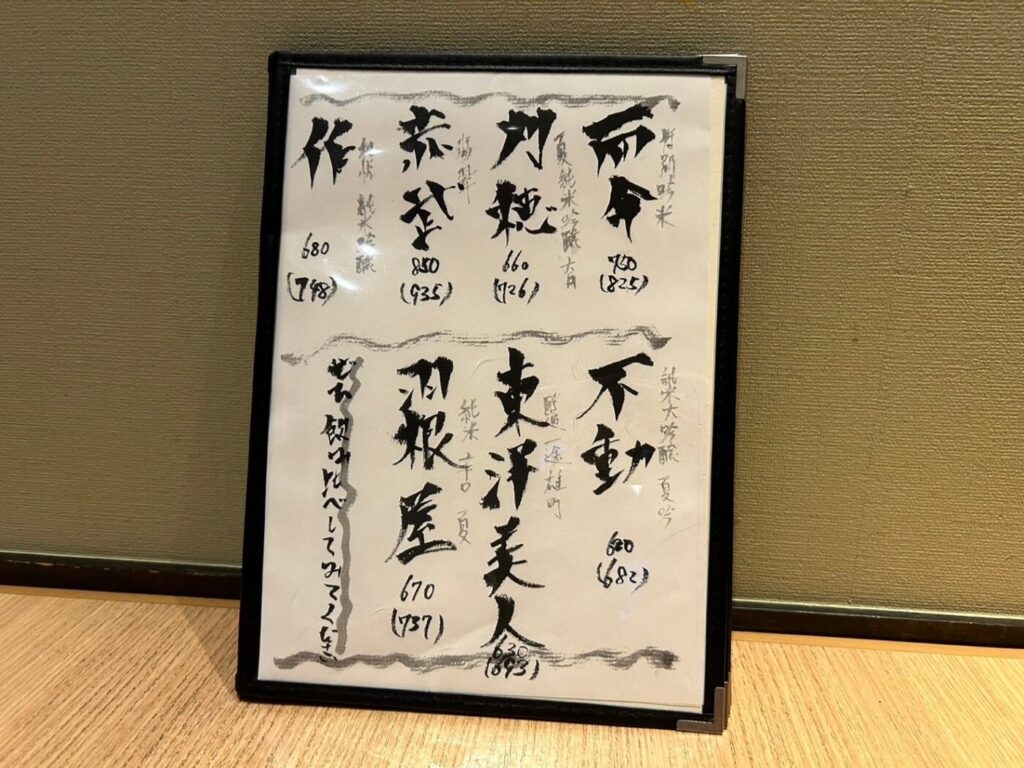 特別吟米
而今
750
(825)
夏純米吟醸 六日
刈穂
660
(726)
赤武
850
(935)
純米吟醸
作
680
(748)
純米大吟醸 夏吟
不動
620
(682)
醇道一途 雄町
東洋美人
630
(693)
純米 辛口 夏
羽根屋
670
(737)
ぜひ飲み比べしてみてください